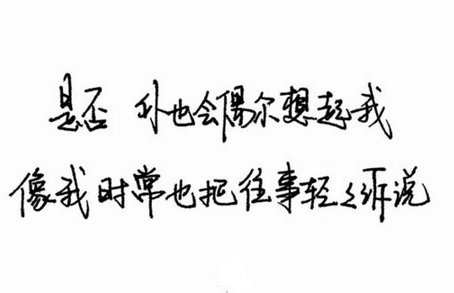 是否 你也会偶尔想起我
像我时常也把往事轻轻诉说